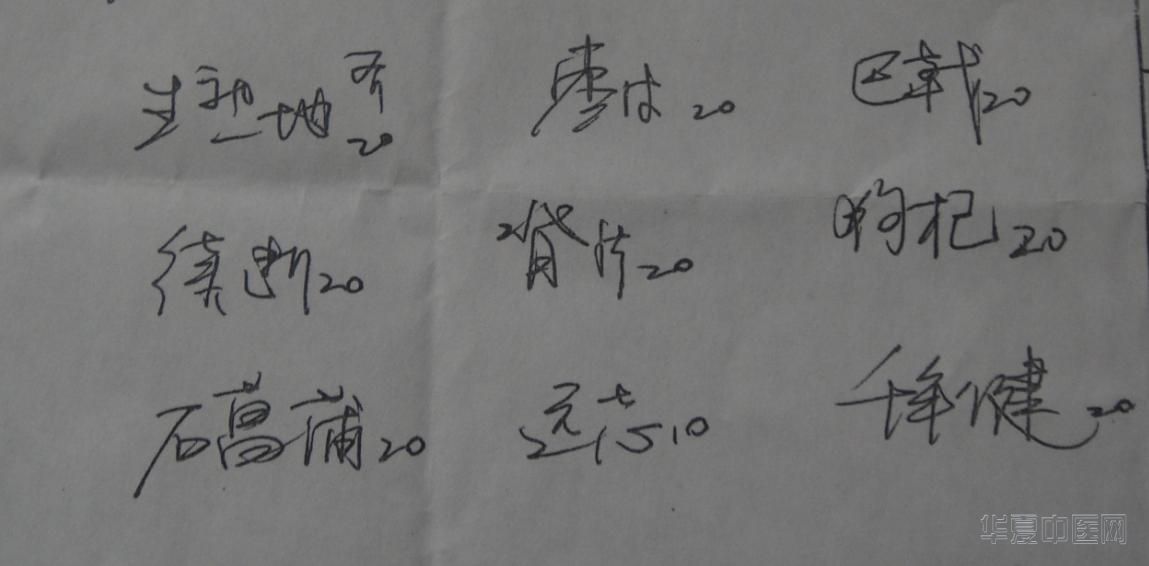 生熟地 各20 枣皮 20 巴戟20
续断20 狗脊片20 枸杞20
石菖蒲20 远志10 千年健20
华夏中医网